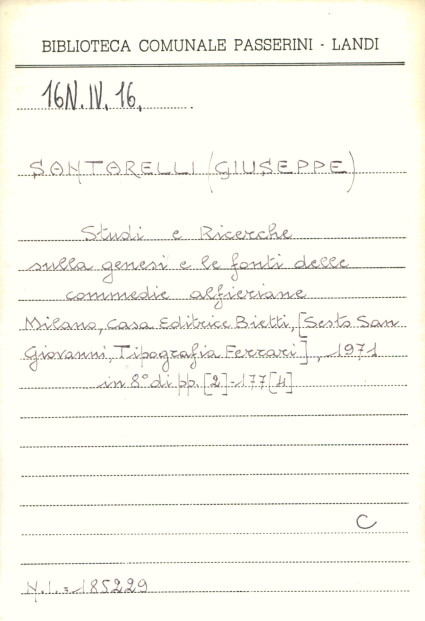 BIBLIOTECA COMUNALE PASSERINI - LANDI
16N.IV.16.
SANTARELLI (GIUSEPPE)
Studi e Ricerche
sulla genesi e le fonti delle
commedie alfieriane
Milano, Casa Editrice Bietti, [Sesto San
Giovanni, Tipografia Ferrari], 1971
in 8° di pp. [2]-177[4]
C
N.I.=185229